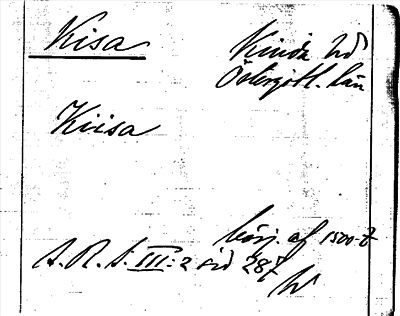 Kisa
Kinda hd
Östergötl. län
Kiisa
börj. af 1500-t
S.R.S. III:2 sid 287